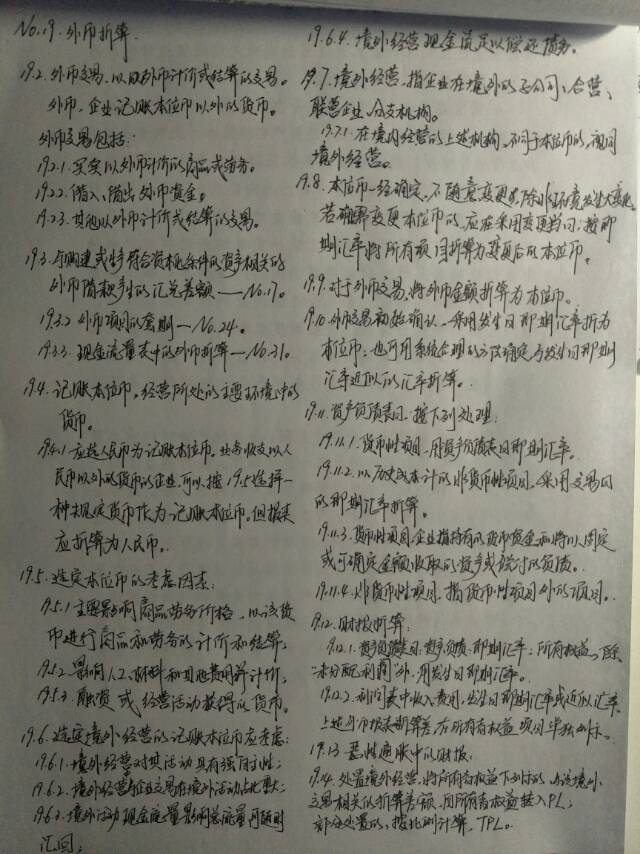 No.19.外币折算.
19.2.外币交易.以外币计价或结算的交易。
外币.企业记账本位币以外的货币。
外币交易包括:
19.2.1.买卖以外币计价的商品或劳务。
19.2.2.借入、借出外币资金。
19.2.3.其他以外币计价或结算的交易。
19.3.与购建或生产符合资本化条件的资产相关的
外币借款产生的汇兑差额——No.17。
19.3.2外币项目的套期—No.24。
19.3.3.现金流量表中的外币折算—No.31。
19.4.记账本位币.经营所处的主要环境中的
货币。
19.4.1应选人民币为记账本位币。业务收支以人
民币以外的货币的企业,可以按19.5选择一
种规定货币作为记账本位币。但报表
应折算为人民币。
19.5.选定本位币的考虑因素:
19.5.1主要影响商品劳务价格,以该货
币进行商品和劳务的计价和结算;
19.5.2.影响人工、材料和其他费用并计价;
19.5.3.融资或经营活动获得的货币。
19.6.选定境外经营的记账本位币应考虑:
19.6.1.境外经营对其活动具有强自主性;
19.6.2.境外经营与企业交易在境外活动占比重大;
19.6.3.境外活动现金流量影响总流量可随时
汇回;
19.6.4.境外经营现金流足以偿还债务。
19.7.境外经营.指企业在境外的子公司、合营、
联营企业、分支机构。
19.7.1.在境内经营的上述机构,不同于本位币的,视同
境外经营。
19.8.本位币一经确定,不随意变更,除非环境发生大变化
若确需变更本位币的,应在采用变更当日,按即
期汇率将所有项目折算为变更后的本位币。
19.9.对于外币交易,将外币金额折算为本位币。
19.10.外币交易初始确认,采用发生日即期汇率折为
本位币;也可用系统合理的方法确定,与发生日即期
汇率近似的汇率折算。
19.11.资产负债表日.按下列处理:
19.11.1.货币性项目.用资产负债表日即期汇率。
19.11.2.以历史成本计的非货币性项目,采用交易日
的即期汇率折算。
19.11.3.货币性项目,企业指持有的货币资金和将以固定
或可确定金额收取的资产或偿付的负债。
19.11.4.非货币性项目,指货币性项目外的项目。
19.12.财报折算:
19.12.1.资产负债表,资产负债.即期汇率;所有权益,除
“未分配利润”外,用发生日即期汇率。
19.12.2.利润表中收入费用,发生日即期汇率或近似汇率。
上述外币报表折算差在所有者权益项目单独列示。
19.13.恶性通胀中的财报:
19.14.处置境外经营,将所有者权益下列示的、与该境外
相关的折算差额,自所有者权益转入PL;
部分处置的,按比例计算,TPL。